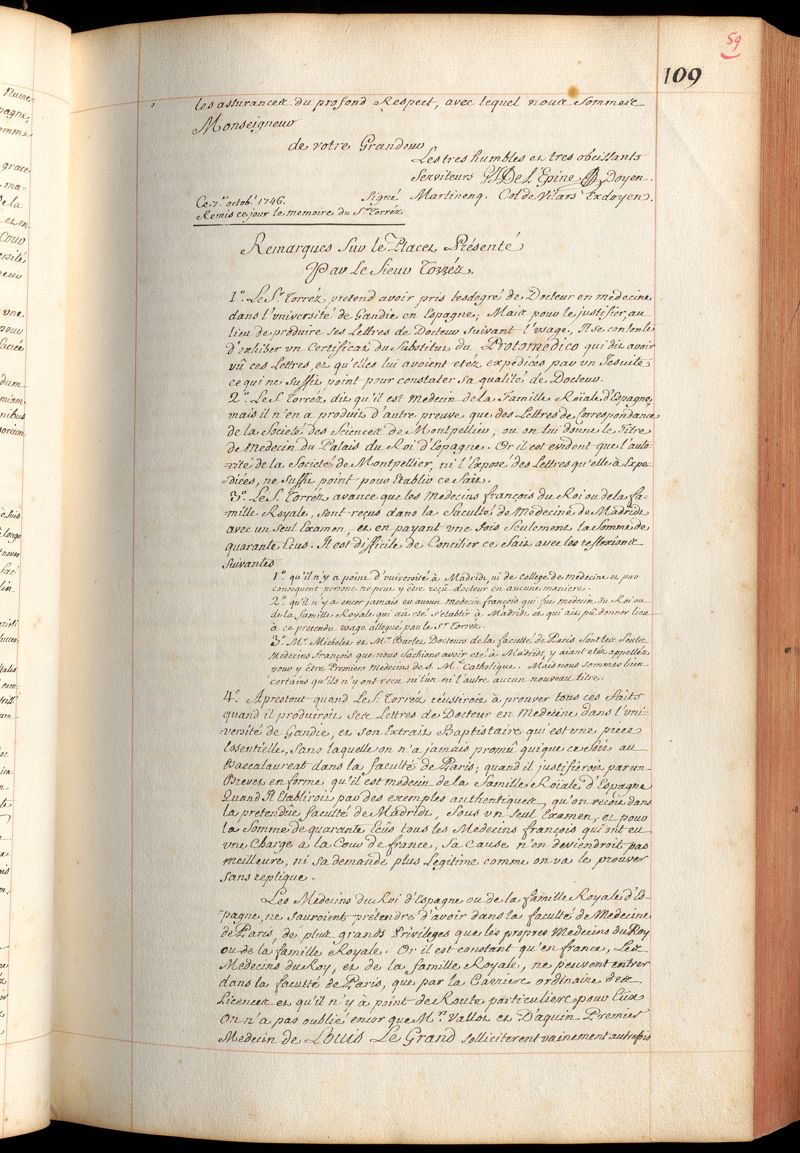 59
109
les assurances du profond Respect, avec lequel nous sommes
Monseigneur
de votre Grandeur
Les tres humbles et tres obeissants
Serviteurs De l'Epine Doyen.
Ce 7.e octob.e 1746. Signé Martinenq. Col de Vilars Exdoyen.
Remis ce jour le memoire du S.r Torréz
Remarques Sur le Placet Présenté
Par Le Sieur Torréz.
1.o Le S.r Torréz pretend avoir pris les degré de Docteur en medecine
dans l'université de Gandie en Espagne; Mais pour le justifier, au
lieu de produire ses Lettres de Docteur Suivant l'usage, Il se contente
d'exhiber un Certificat du Substitut du Protomedico qui dit avoir
vû ces Lettres, et qu'elles lui avoient eté expédiées par un Jesuite
ce qui ne suffit point pour constater sa qualité de Docteur.
2.o Le S.r Torréz dit qu'il est medecin de la Famille Roïale d'Espagne,
mais il n'en a produit d'autre preuve que des Lettres de Correspondance
de la Societé des Sciences de Montpellier, ou on lui donne le Titre
de Medecin du Palais du Roi d'Espagne. Or il est evident que l'auto-
-rité de la Societé de Montpellier, ni l'Exposé des Lettres qu'elle a Expe-
-diées, ne suffit point pour Etablir ce fait.
3.o Le S.r Torréz avance que les Medecins françois du Roi ou de la fa-
mille Royale, sont reçus dans la faculté de Médecine de Madridt
avec un seul Examen, et en payant une fois seulement la Somme de
quarante Ecus. Il est difficile de Concilier ce fait avec les reflexions
Suivantes
1.o qu'il n'y a point d'université à Madridt, ni de college de medecine et par
consequent personne ne peut y être reçû docteur en aucune maniere.
2.o qu'il n'y a encor jamais eu aucun medecin françois qui fut medecin du Roi ou
de la famille Royale qui ait eté s'etablir à Madridt et qui ait pû donner lieu
à ce pretendu usage allegué par le S.r Torréz.
3.o M.r Michelet et M.r Burlet Docteurs de la faculté de Paris sont les seuls
Medecins François que nous sachions avoir eté à Madridt, y aiant etés appellez
pour y être Premiers Medecins de S. M.té Catholique. Mais nous sommes bien
certains qu'ils n'y ont reçu ni l'un ni l'autre aucun nouveau titre.
4.o Aprestout quand Le S.r Torréz réussiroit à prouver tous ces faits
quand il produiroit ses Lettres de Docteur en Medecine dans l'uni-
-versité de Gandie, et son Extrait Baptistaire qui est une piece
Essentielle, sans laquelle on n'a jamais promû qui que ce soit au
Baccalaureat dans la faculté de Paris; quand il justifieroit par un
Brevet en forme qu'il est medecin de la Famille Roïale d'Espagne
Quand Il Etabliroit par des exemples authentiques, qu'on reçoit dans
la pretendüe faculté de Madridt, sous un seul Examen, et pour
la somme de quarante Ecûs tous les Medecins françois qui ont eu
une Charge à la Cour de france, sa cause n'en deviendroit pas
meilleure, ni sa demande plus Légitime comme on va le prouver
sans replique.
Les Médecins du Roi d'Espagne ou de la famille Royale d'Es-
-pagne, ne sauroient prétendre d'avoir dans la faculté de Medecine
de Paris, de plus grands Privileges que les propres Medecins du Roy
ou de la famille Royale. Or il est constant qu'en france, Les
Medecins du Roy, et de la famille Royale, ne peuvent entrer
dans la faculté de Paris, que par la Carriere ordinaire des
Licences et qu'il n'y a point de Route particuliere pour Eux
On n'a pas oublié encor que M.rs Vallot et D'aquin Premier
Medecin de Louis Le Grand solliciterent vainement autrefois